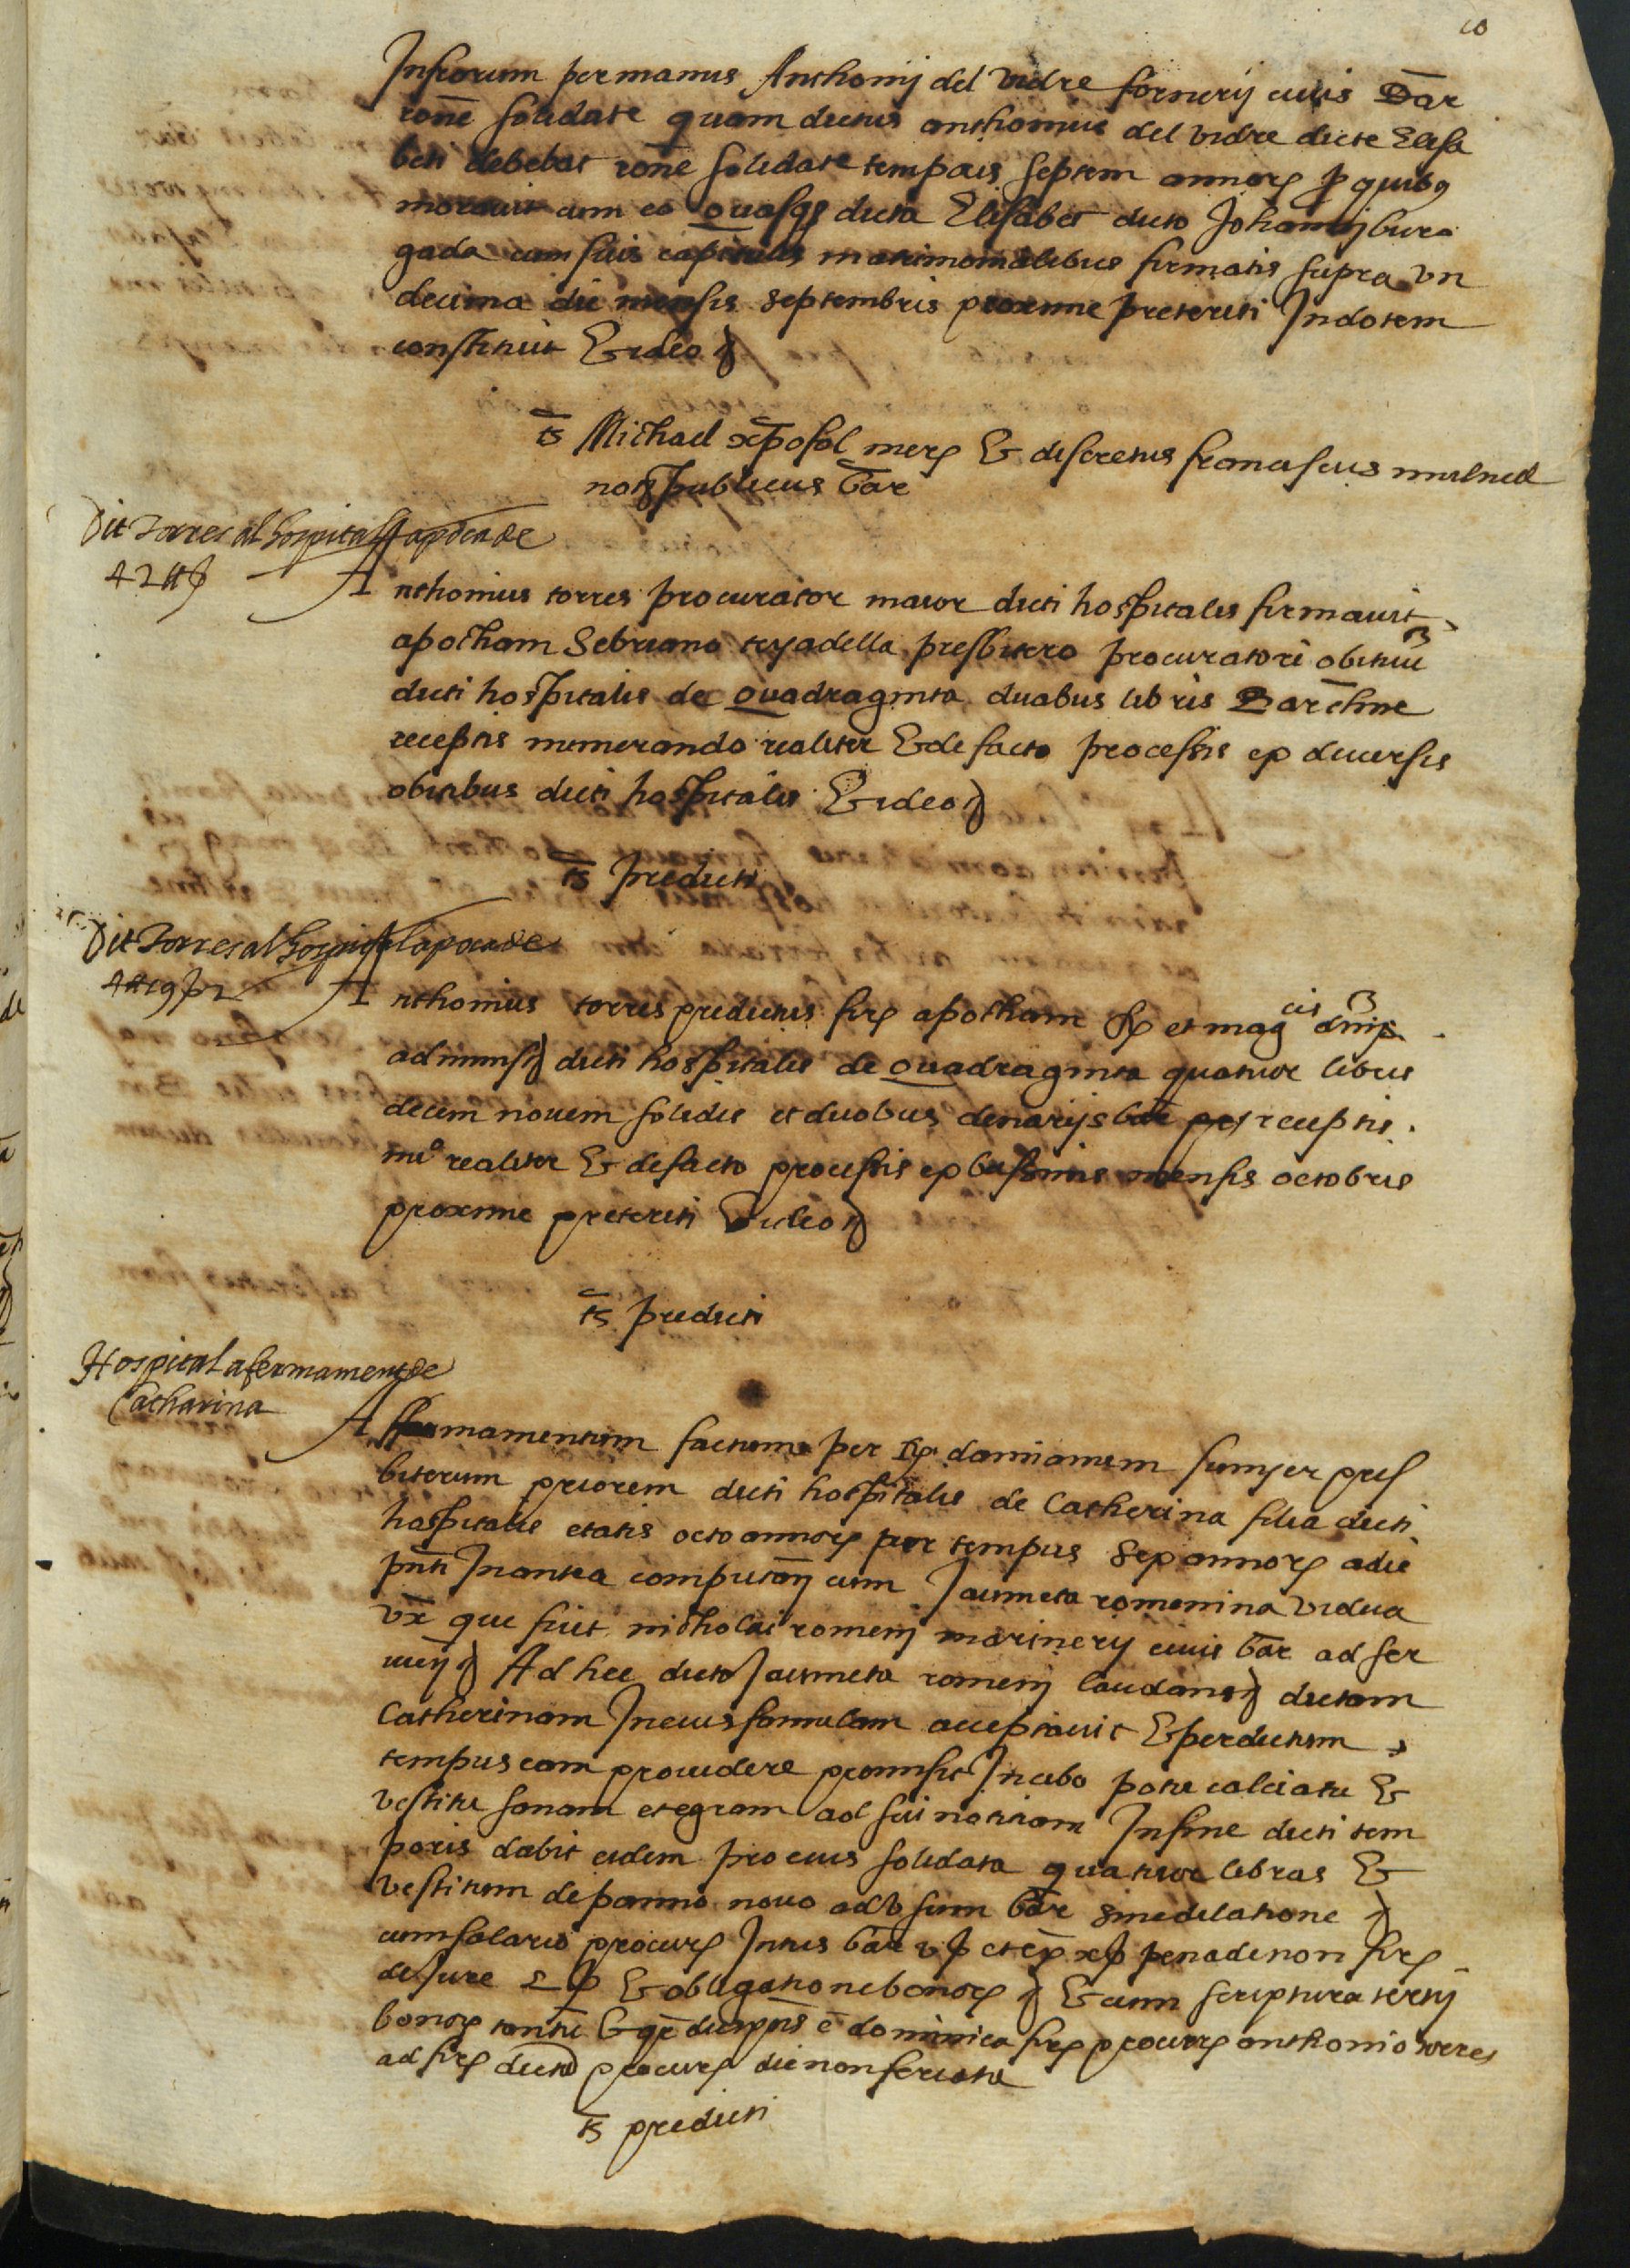 10
Infrorum per manus Anthonij del vidre fornerij civis Bar
rone solidate quam dictus anthonius del vidre dicte Elisa
beti debebat rone solidate temporis septem annor p quibg
moravit cum eo Quasqs dicta Elisabet dicto Johani bura
gada cum suis capitulis matrimonialibus firmatis supra vn
decima die mensis septembris proxime preteriti In dotem
constituit Et ideo
ts Michael xpofol mer & discretus franciscus mulned
not publicus Bar
Dit Torres al hospital apocade
42 ℔
Anthonius torres procurator maior dicti hospitalis firmavit
apocham Sebriano teyadella presbitero procuratori obituu
dicti hospitalis de Quadraginta duabus libris Barchne
receptis numerando realiter & de facto processis ex diversis
obitibus dicti hospitalis Et ideo
ts predicti
Dit Torres al hospital apocade
44 ℔ 19 2
Anthonius torres predictus fir apocham et magcis dnis
adminis dicti hospitalis de Quadraginta quatuor libris
decim novem solidis et duobus denarijs bar receptis
nuo realiter & de facto processis ex basinis mensis octobris
proxime preteriti Et ideo
ts predicti
Hospital afermament de
Catharina
Affirmamentum factum per damianum sunyer pres
biterum priorem dicti hospitalis de Catherina filia dicti
hospitalis etatis octo annor per tempus Sex annor a die
pnti In antea computan cum Jaumeta romenina vidua
vx que fuit nicholai romeni marinerij civis bar ad ser
viey Ad hec dicta Jaumeta romenij laudans dictam
Catherinam In eius famulam acceptavit & per dictum
tempus eam providere promisit In cibo potu calciatu &
vestitu sanam et egram ad sui notitiam In fine dicti tem
poris dabit eidem pro eius solidata quatuor libras &
vestitum de panno novo ad vsum bar sine dilatione
cum salario procur Intus bar v et ex x pena de non fir
de Jure & obligatione bonor & cum scriptura tertij
bonor tantu & qr dies pns e dominica fir procur anthonio torres
ad fir dicto procur die non feriata
ts predicti